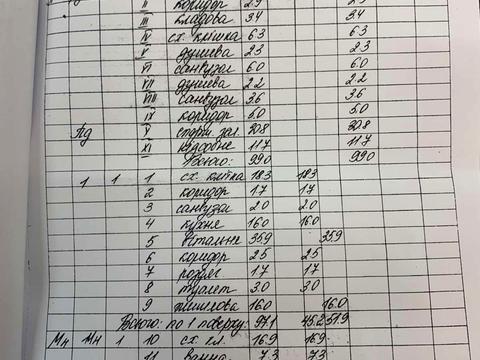 II коридор 2.9 2.9
III кладова 3.4 3.4
IV сх. клітка 6.3 6.3
V душева 2.3 2.3
VI санвузол 6.0 6.0
VII душева 2.2 2.2
VIII санвузол 3.6 3.6
IX коридор 5.0 5.0
Пд X спорт. зал. 20.8 20.8
XI підсобне 11.7 11.7
Всього: 99.0 99.0
1 1 1 сх. клітка 18.3 18.3
2 коридор 1.7 1.7
3 санвузол 2.0 2.0
4 кухня 16.0 16.0
5 вітальня 35.9 35.9
6 коридор 2.5 2.5
7 роздяг 1.7 1.7
8 туалет 3.0 3.0
9 житлова 16.0 16.0
Всього: по 1 поверху: 97.1 45.2 51.9
Мн Мн 1 10 сх. кл. 16.9 16.9
11 ванна 7.3 7.3